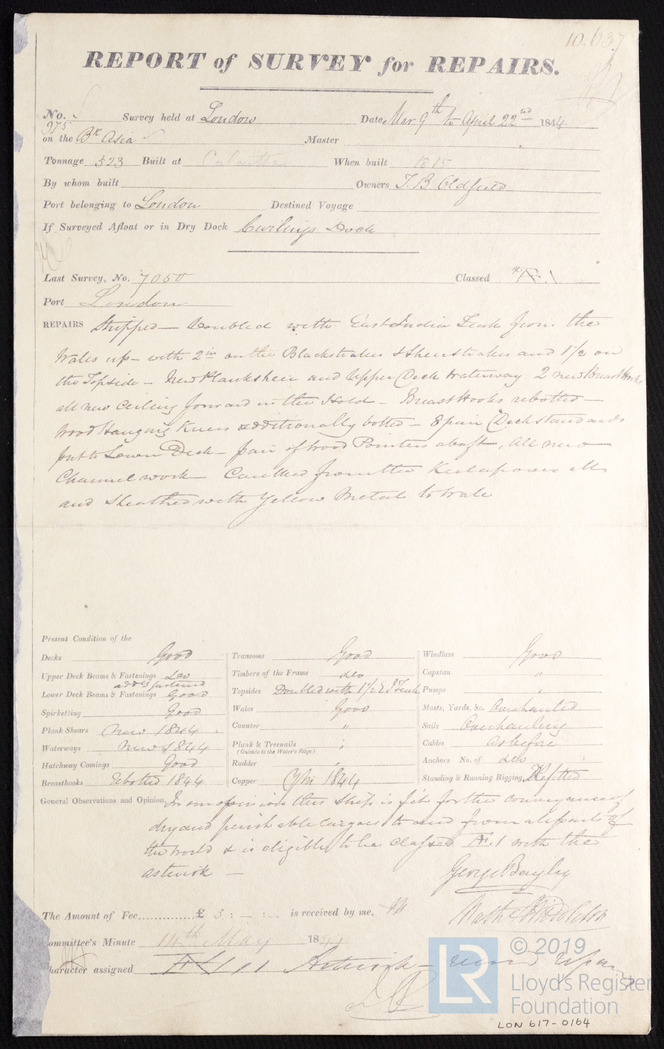 10.637
REPORT of SURVEY for REPAIRS.
No. 975 Survey held at London Date, Mar 9th to April 22nd 1844
on the Bk Asia Master
Tonnage 523 Built at Calcutta When built 1815
By whom built Owners T. B. Oldfield
Port belonging to London Destined Voyage
If Surveyed Afloat or in Dry Dock Curlings Dock
Last Survey, No. 7050 Classed Æ 1
Port London
REPAIRS Stripped — Doubled with East India Teak from the
Wales up — with 2 in on the Blackstrakes & Sheerstrakes and 1 1/2 on
the Topside — New Planksheer and Upper Deck Waterway. 2 new Breast Hooks
all new ceiling forward in the Hold — Breast Hooks rebolted —
Wood Hanging Knees additionally bolted — 8 pair Deck standards
put to Lower Deck — pair of Wood Pointers abaft, All new
Channel work — Caulked from the Keel up over all
and Sheathed with Yellow Metal to Wale
Present Condition of the
Decks Good Transoms Good Windlass Good
Upper Deck Beams & Fastenings do Timbers of the Frame do Capstan "
add fastened
Lower Deck Beams & Fastenings Good Topsides Doubled with 1 1/2 E I Teak Pumps "
Spirketting Good Wales Good Masts, Yards, &c. Overhauled
Plank Shears New 1844 Counter " Sails Overhauling
Waterways New 1844 Plank & Treenails " Cables as before
(Outside to the Water's Edge)
Hatchway Comings Good Rudder " Anchors No. of do
Breasthooks Rebolted 1844 Copper Y/M 1844 Standing & Running Rigging, Refitted
General Observations and Opinion, In our opinion this ship is fit for the conveyance of
dry and perishable cargoes to and from all parts of
the world & is eligible to be classed Æ 1 with the
asterisk —
George Bayley
The Amount of Fee............£ 3 : - : - is received by me,
Committee's Minute 14th May 1844
Character assigned Æ 1 Asterisk
© 2019
LR
Lloyd's Register
Foundation
LON 617-0164